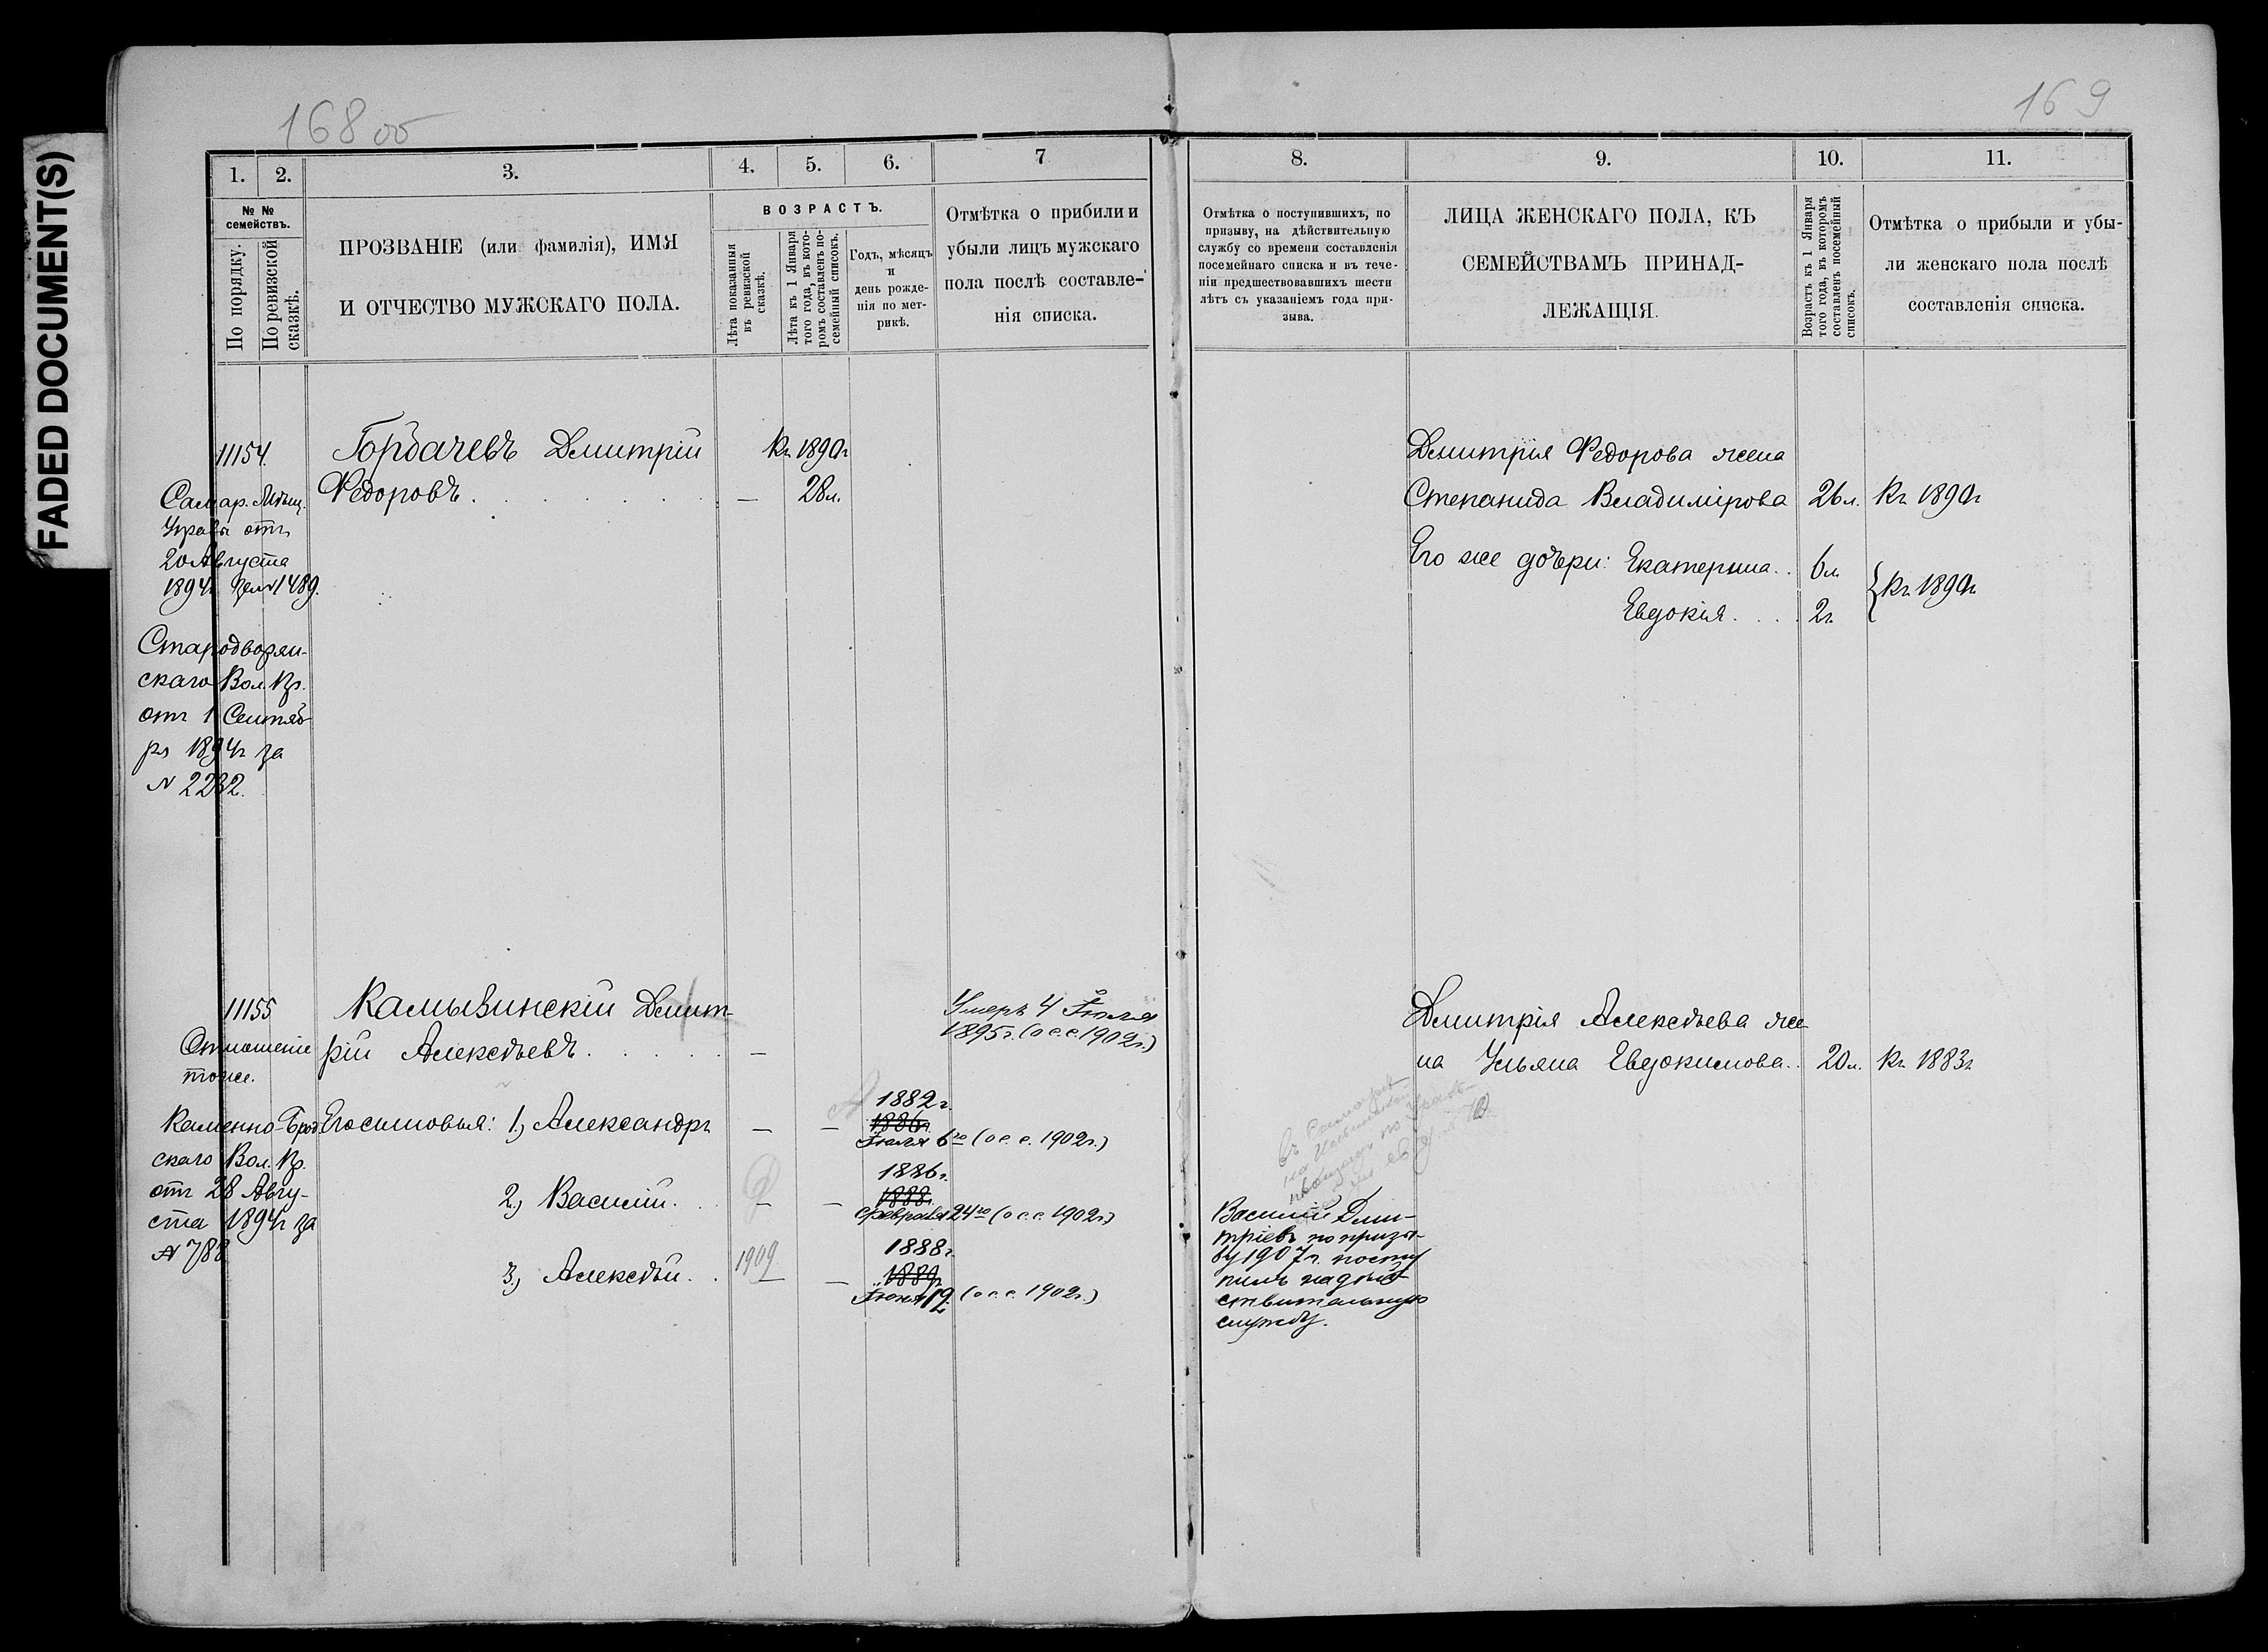 FADED DOCUMENT(S)
168 об
1.
2.
3.
4.
5.
6.
7
№ №
семействъ.
По порядку.
По ревизской
сказкѣ.
ПРОЗВАНІЕ (или фамилія), ИМЯ
И ОТЧЕСТВО МУЖСКАГО ПОЛА.
ВОЗРАСТЪ.
Лѣта показанныя
въ ревизской
сказкѣ.
Лѣта къ 1 Января
того года, въ кото-
ромъ составленъ по-
семейный списокъ.
Годъ, мѣсяцъ
и
день рожде-
нія по мет-
рикѣ.
Отмѣтка о прибыли и
убыли лицъ мужскаго
пола послѣ составле-
нія списка.
11154.
Самар. Мѣщ.
Управы отъ
20 Августа
1894г. за № 1489.
Стародворян-
скаго Вол. Пр.
отъ 1 Сентяб-
ря 1894г за
№ 2232.
Горбачевъ Дмитрій
Ѳедоровъ
—
Къ 1890г
28л.
11155
Отношеніе
тоже.
Каменно-Брод
скаго Вол. Пр.
отъ 28 Авгу-
ста 1894г за
№ 788
Камызинскій Дмит-
рій Алексѣевъ
—
Умеръ 4 Іюля
1895г. (о с.с. 1902г.)
Его сыновья: 1.) Александръ
— —
1882г.
1886г.
Іюля 6го (о с. с. 1902г.)
2.) Василій
— —
1886г.
1888.
Февраля 24го (о с.с. 1902г.)
3.) Алексѣй
1909
— —
1888г.
1889г
Іюня 12. (о с. с. 1902г.)
169
8.
9.
10.
11.
Отмѣтка о поступившихъ, по
призыву, на дѣйствительную
службу со времени составленія
посемейнаго списка и въ тече-
ніи предшествовавшихъ шести
лѣтъ съ указаніемъ года при-
зыва.
ЛИЦА ЖЕНСКАГО ПОЛА, КЪ
СЕМЕЙСТВАМЪ ПРИНАД-
ЛЕЖАЩІЯ.
Возрастъ къ 1 Января
того года, въ которомъ
составленъ посемейный
списокъ.
Отмѣтка о прибыли и убы-
ли женскаго пола послѣ
составленія списка.
Дмитрія Ѳедорова жена
Степанида Владимірова 26л. Къ 1890г
Его же дочери: Екатерина 6л.
Евдокія 2г.
Къ 1890г.
Дмитрія Алексѣева же-
на Ульяна Евдокимова 20л. Къ 1883г
Василій Дми-
тріевъ по призы-
ву 1907г. посту
пилъ на дѣй-
ствительную
службу.